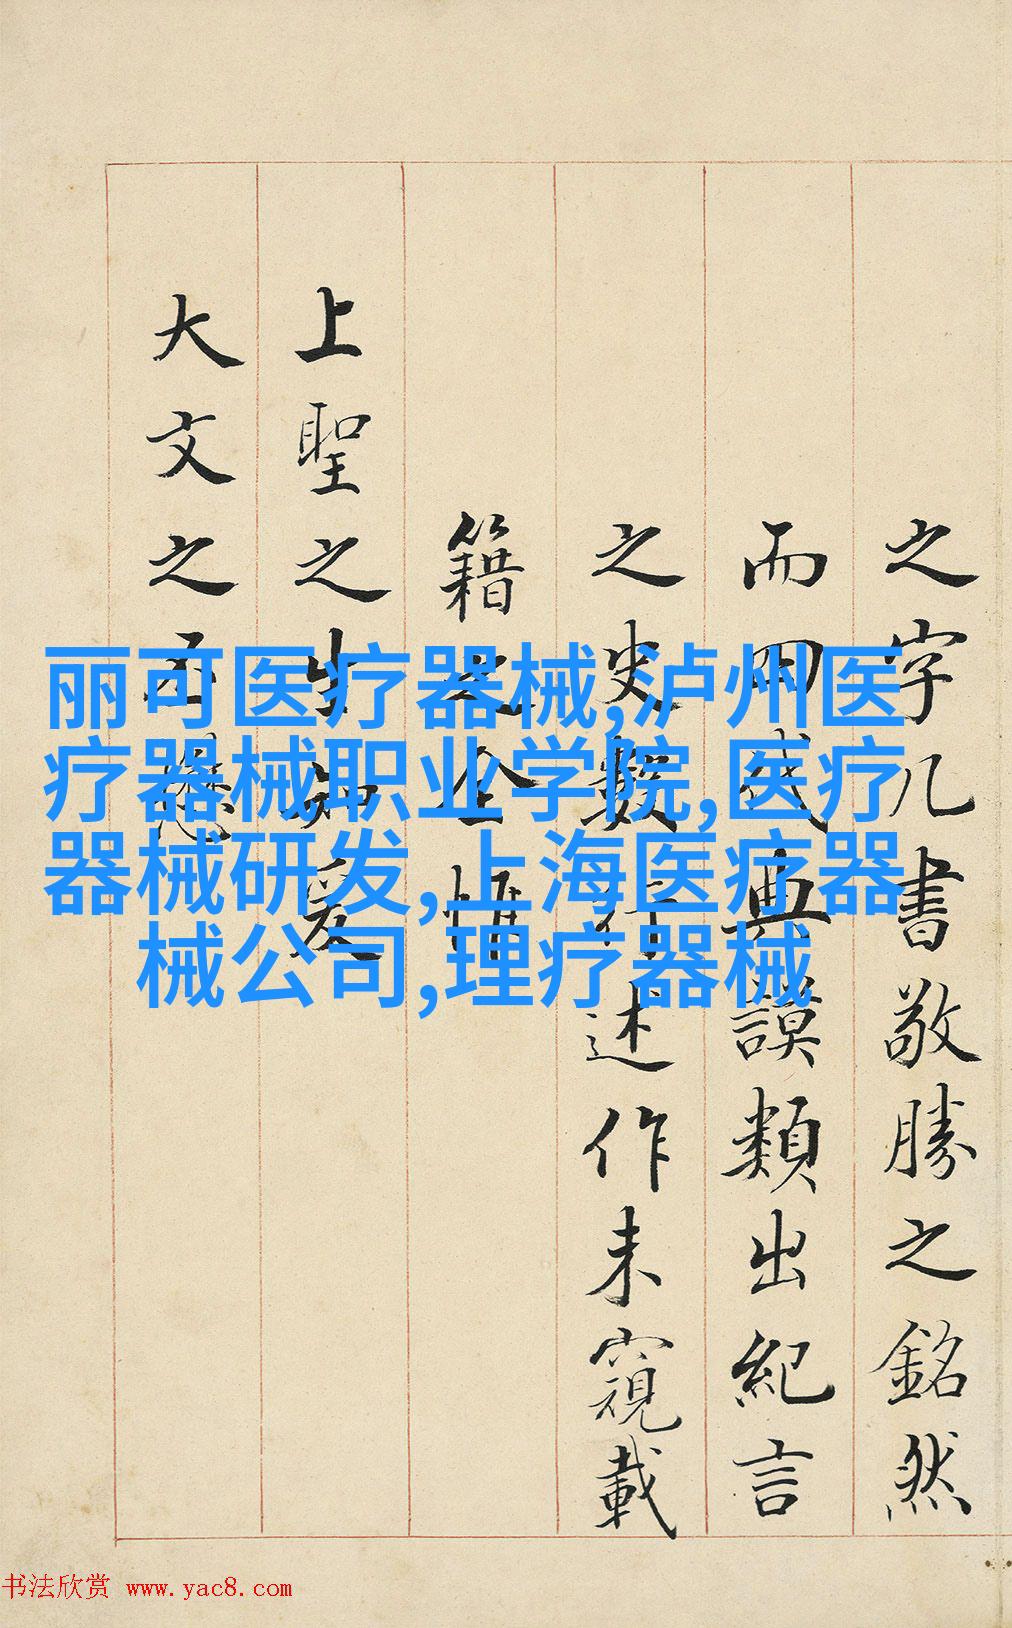 之字几書敬勝之銘然
而用典謨類出紀言
之史數述作未窺載
籍之全惟
上聖之生知爰
大文之丕
丽可医疗器械,泸州医
疗器械职业学院,医疗
器械研发,上海医疗器
械公司,理疗器械
书法欣赏 www.yac8.com